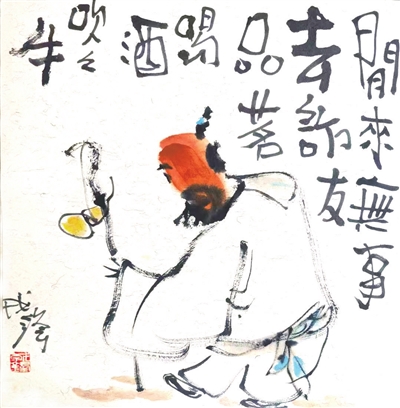 閒來無事
去訪友
品茗
喝
酒
吹々
牛